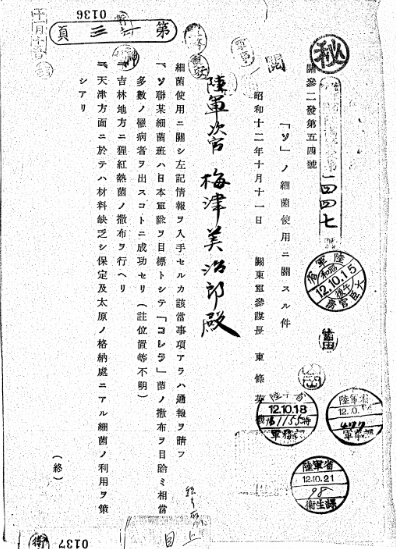 秘
關參二發第五四號
一四四七
「ソ」ノ細菌使用ニ關スル件
昭和十二年十月十一日
關東軍參謀長 東條英
陸軍次官 梅津美治郎殿
細菌使用ニ關シ左記情報ヲ入手セルカ該當事項アラハ通報ヲ請フ
一、ソ聯某細菌班ハ日本軍隊ヲ目標トシテ「コレラ」菌ノ撒布ヲ目論ミ相當
多數ノ罹病者ヲ出スコトニ成功セリ(註位置等不明)
一、吉林地方ニ猩紅熱菌ノ撒布ヲ行ヘリ
一、天津方面ニ於テハ材料缺乏シ保定及太原ノ格納處ニアル細菌ノ利用ヲ策
シアリ
(終)
陸軍省
12.10.15
大臣官房
12.10.18
軍務
陸軍省
陸軍省
12.10.21
98
衛生課
第三頁
0136
0137